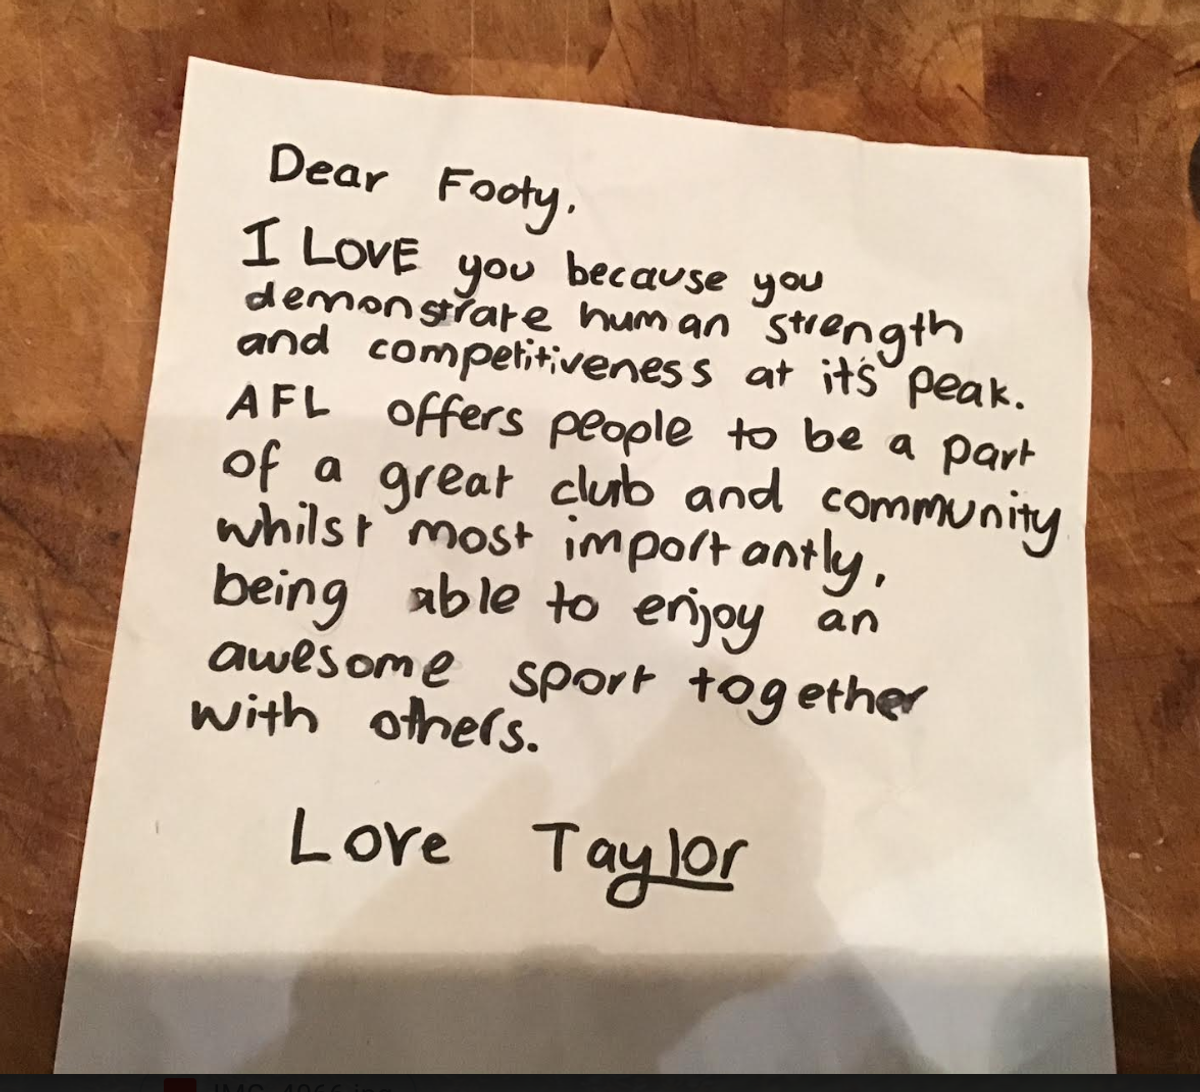 Dear Footy,
I LOVE you because you
demonstrate human strength
and competitiveness at it's peak.
AFL offers people to be a part
of a great club and community
whilst most importantly,
being able to enjoy an
awesome sport together
with others.
Love Taylor